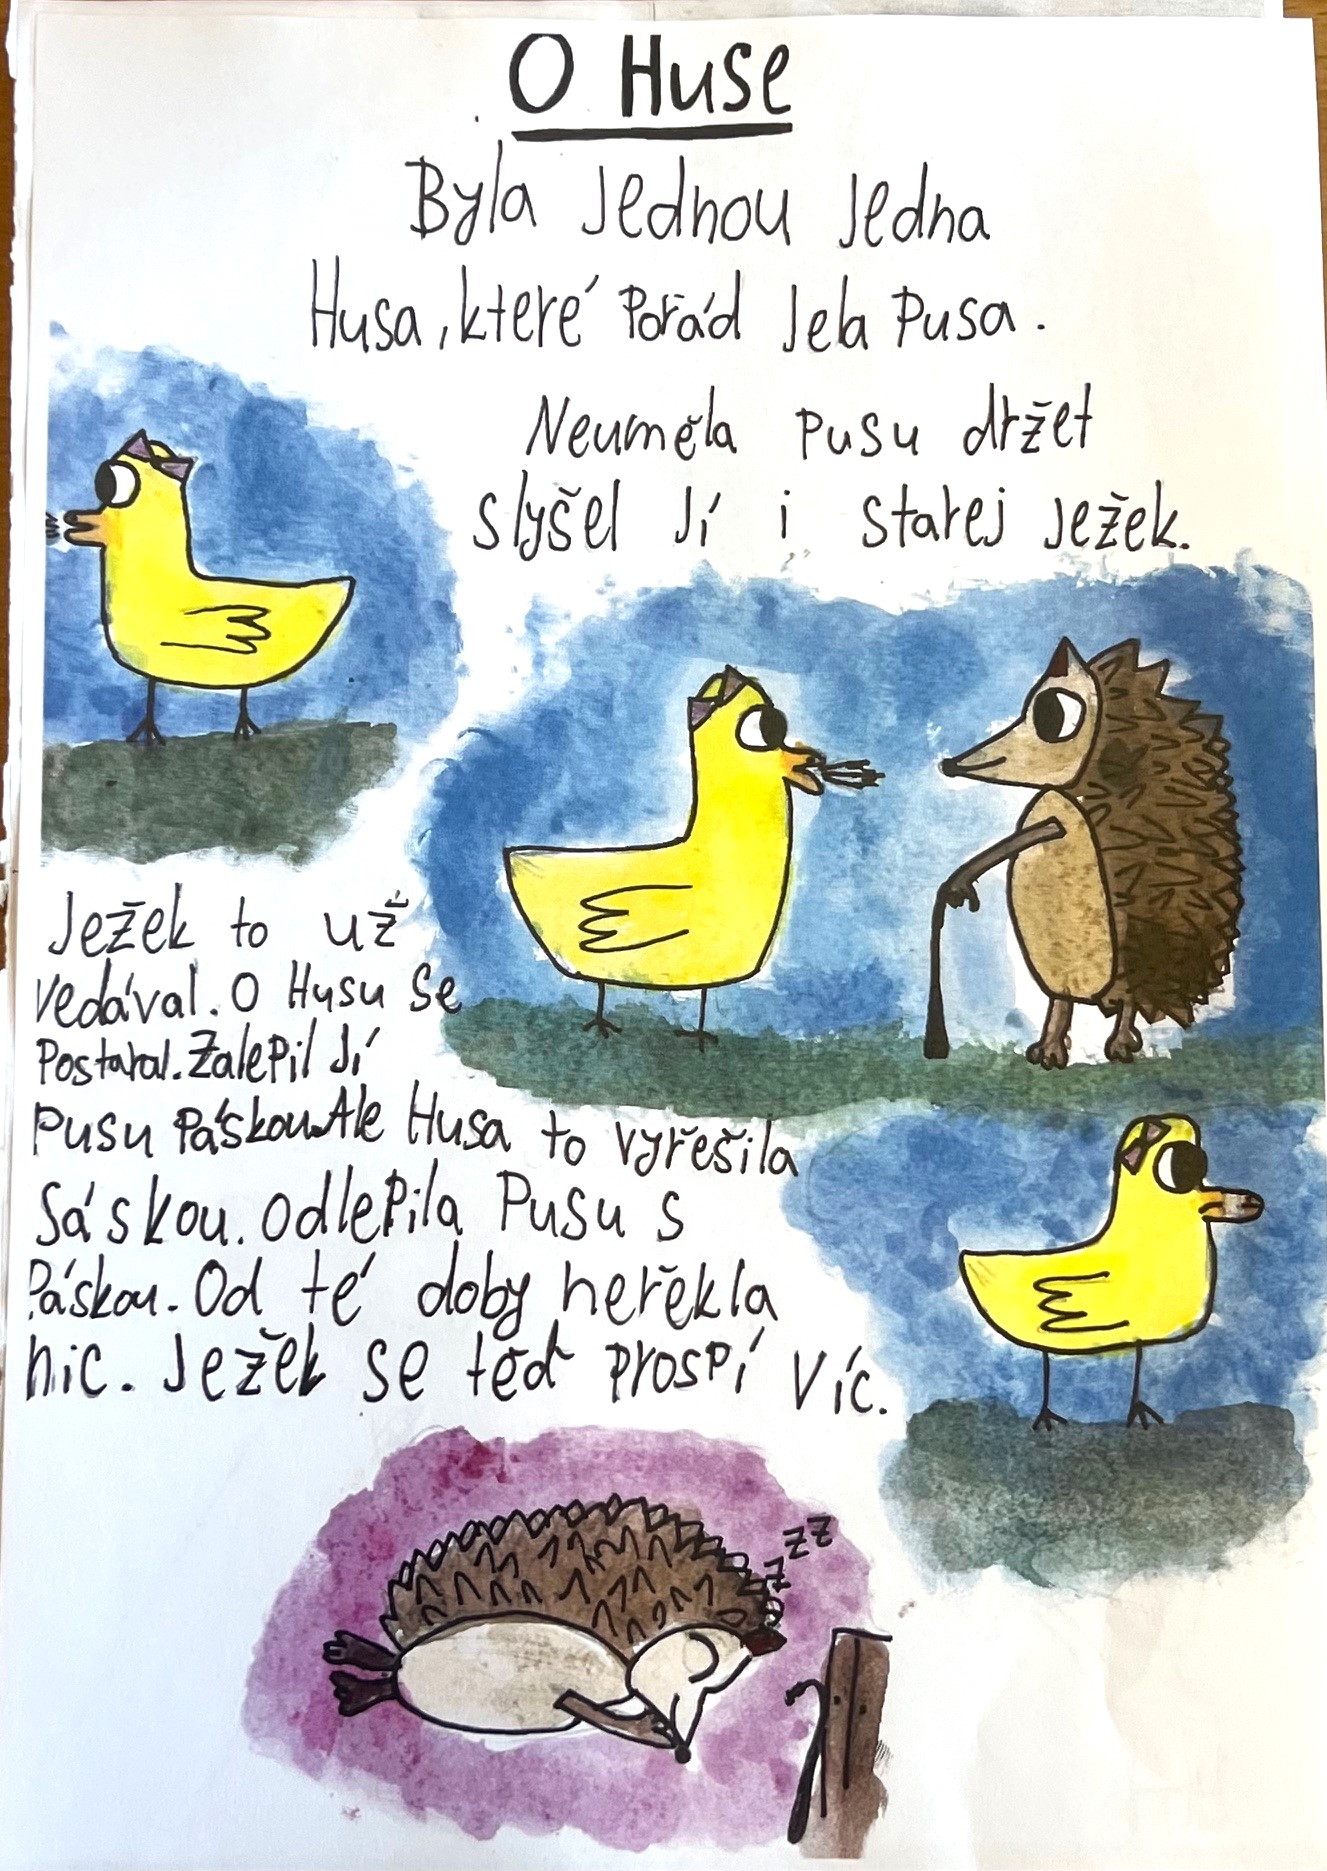 O Huse
Byla Jednou Jedna
Husa, které Pořád Jela Pusa.
Neuměla pusu držet
slyšel Jí i starej Ježek.
Ježek to už
vedával. O Husu se
Postaral. Zalepil Jí
Pusu Páskou. Ale Husa to vyřešila
Sáskou. odlepila Pusu s
Páskou. Od té doby neřekla
nic. Ježek se teď prospí víc.
z z z z